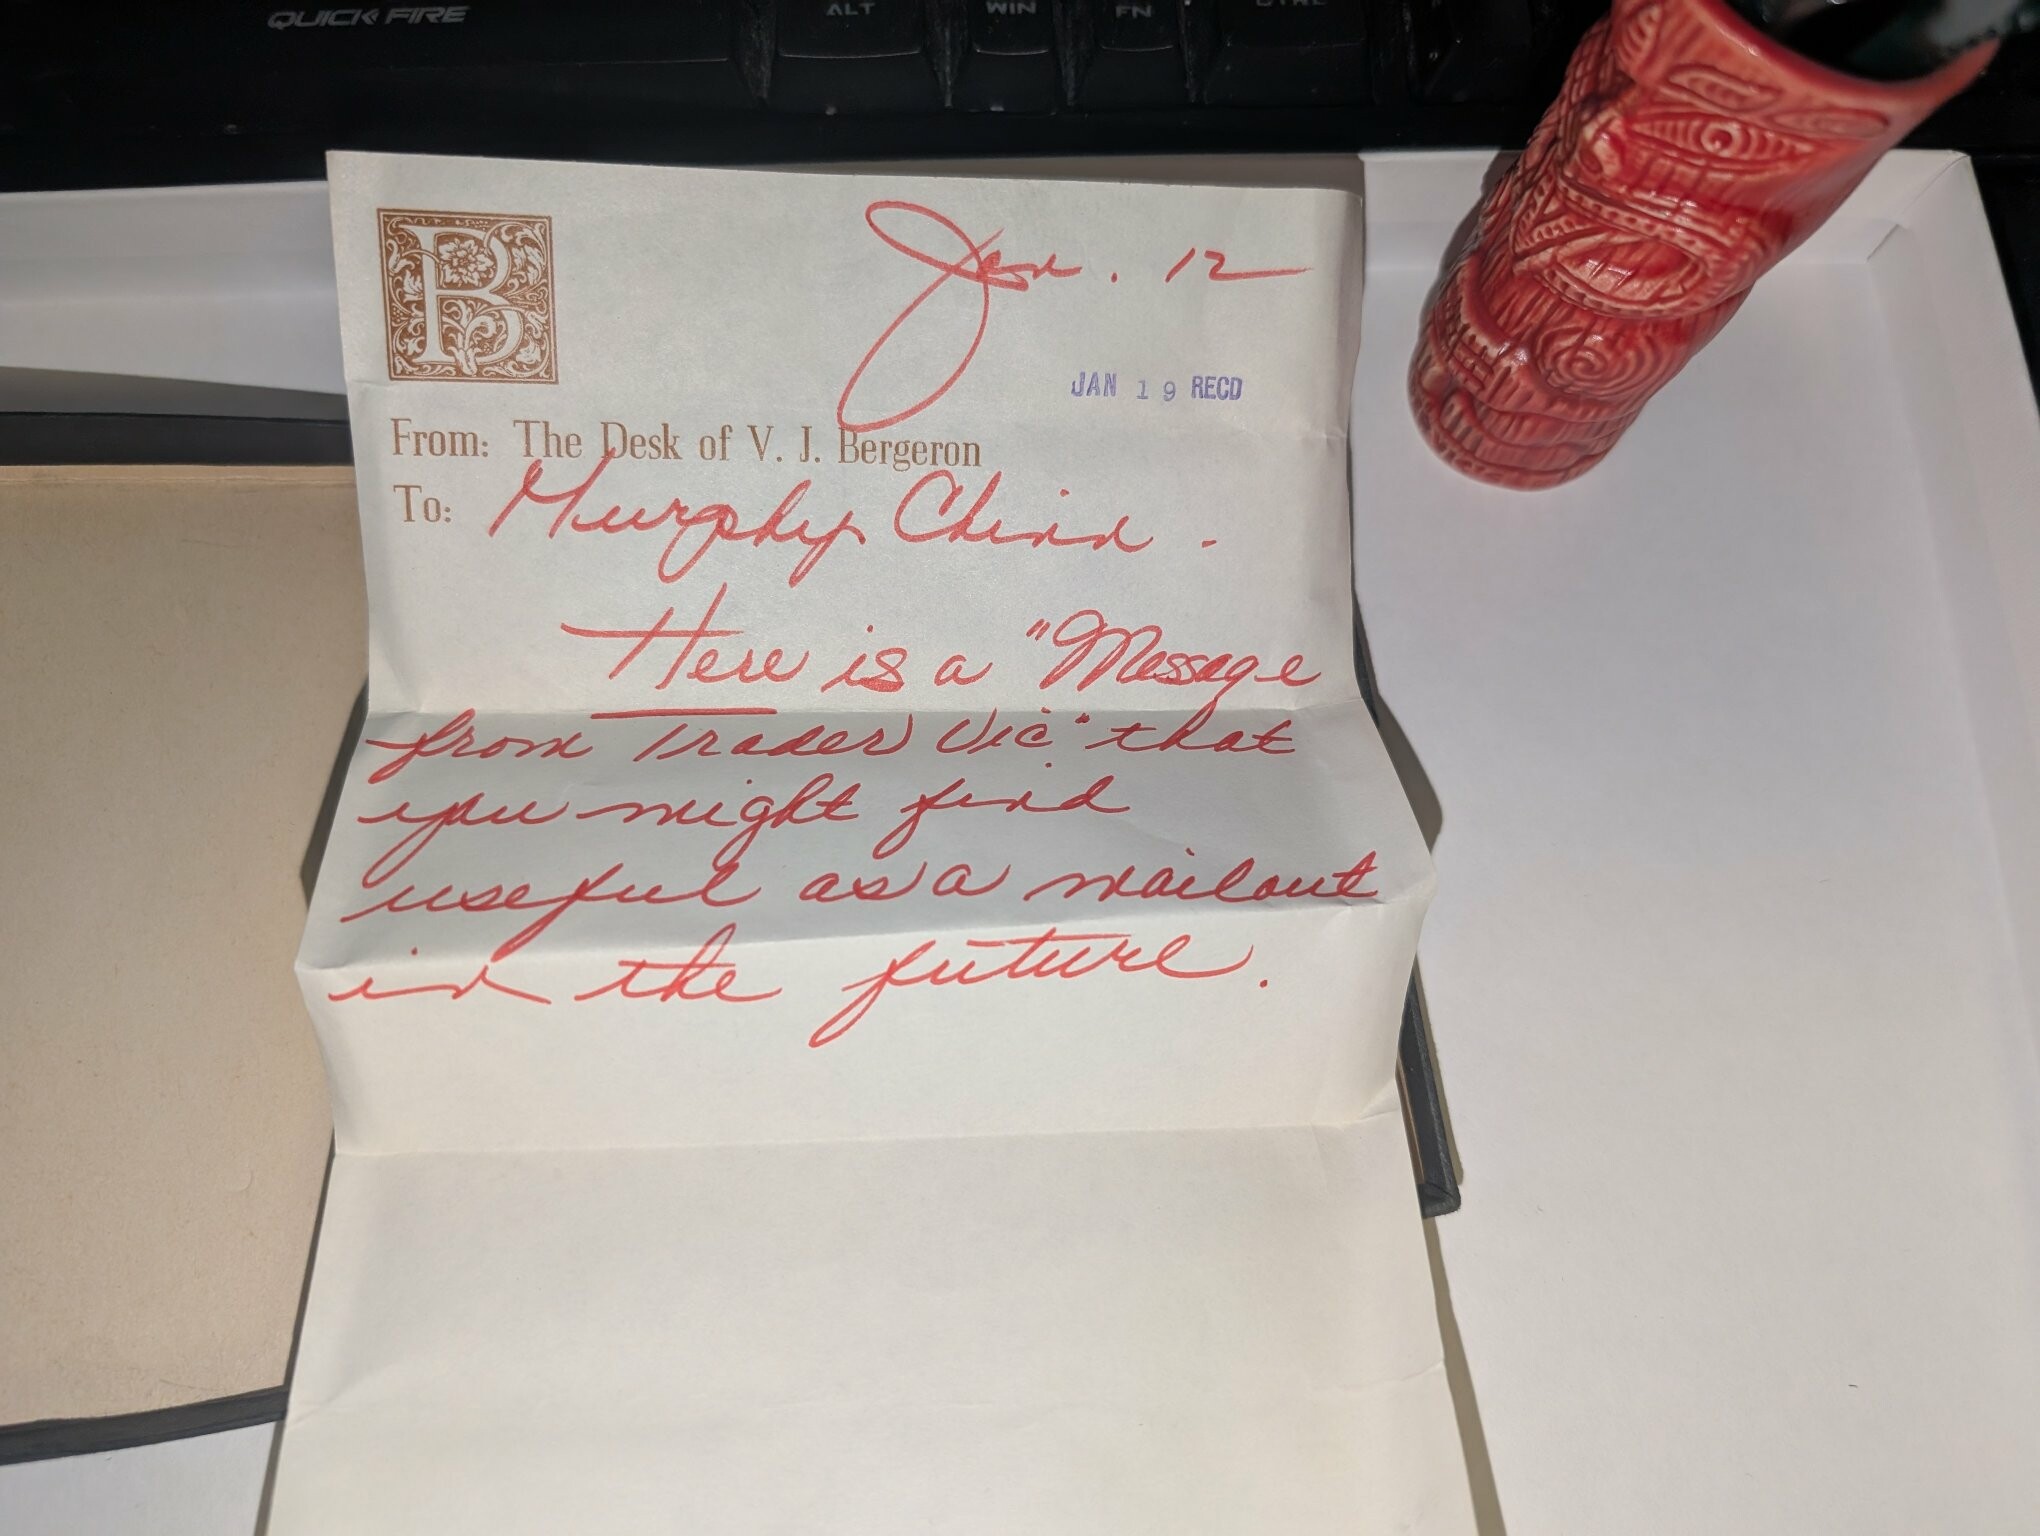 QUICK FIRE ALT WIN FN CTRL
B
Jan. 12
JAN 19 RECD
From: The Desk of V. J. Bergeron
To: Murphy Chinn.
Here is a "Message
from Trader Vic" that
you might find
useful as a mailout
in the future.